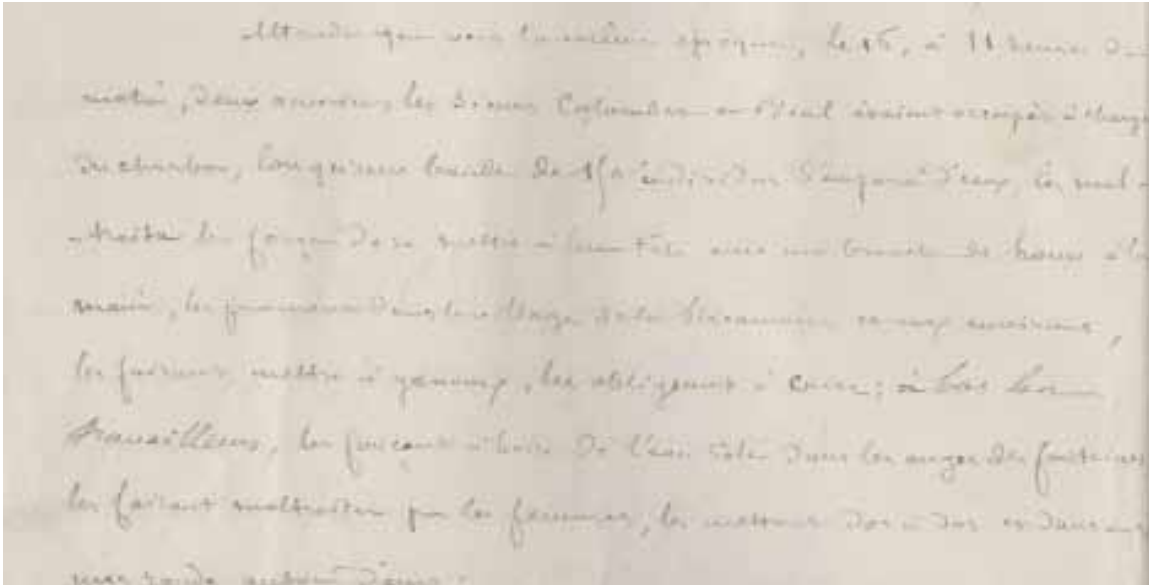 Attendu que vers la même époque, le 16, à 11 heures du
matin, deux ouvriers, les sieurs Colomber et étaient occupés à charger
du charbon, lorsqu'une bande de individus s'empara d'eux, les mal-
-traita les força de se mettre à leur tête avec une branche de houx à la
main, les promena dans le village de la et aux environs,
les faisant mettre à genoux, les obligeant à crier: à bas les
travailleurs, les forçant à boire de l'eau sale dans les auges des fontaines
les faisant maltraiter par les femmes, les mettant dos à dos et dansant
une ronde autour d'eux.